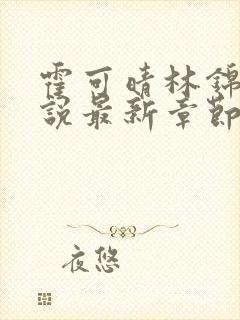 霍可晴林錦
說最新章節
夜悠